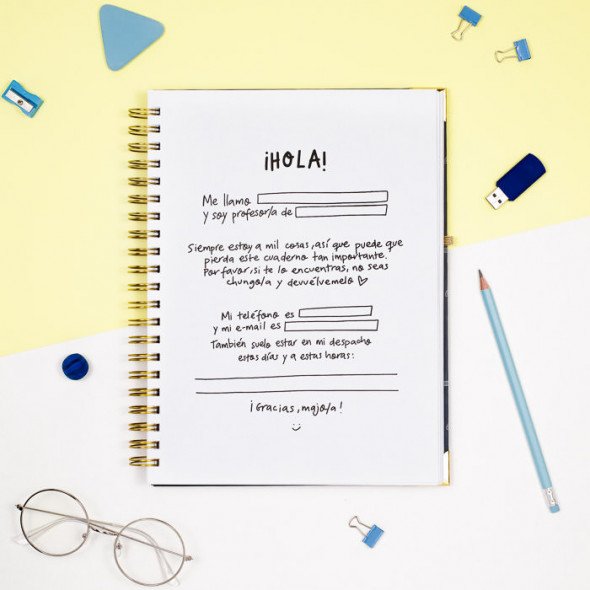 ¡HOLA!
Me llamo
y soy profesor/a de
Siempre estoy a mil cosas, así que puede que
pierda este cuaderno tan importante.
Por favor, si te lo encuentras, no seas
chungo/a y devuélvemelo
Mi teléfono es
y mi e-mail es
También suelo estar en mi despacho
estos días y a estas horas:
¡Gracias, majo/a!